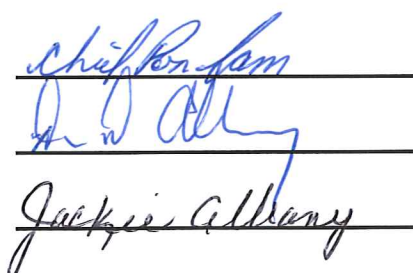 Chief Ron Sam
Albany
Jackie Albany